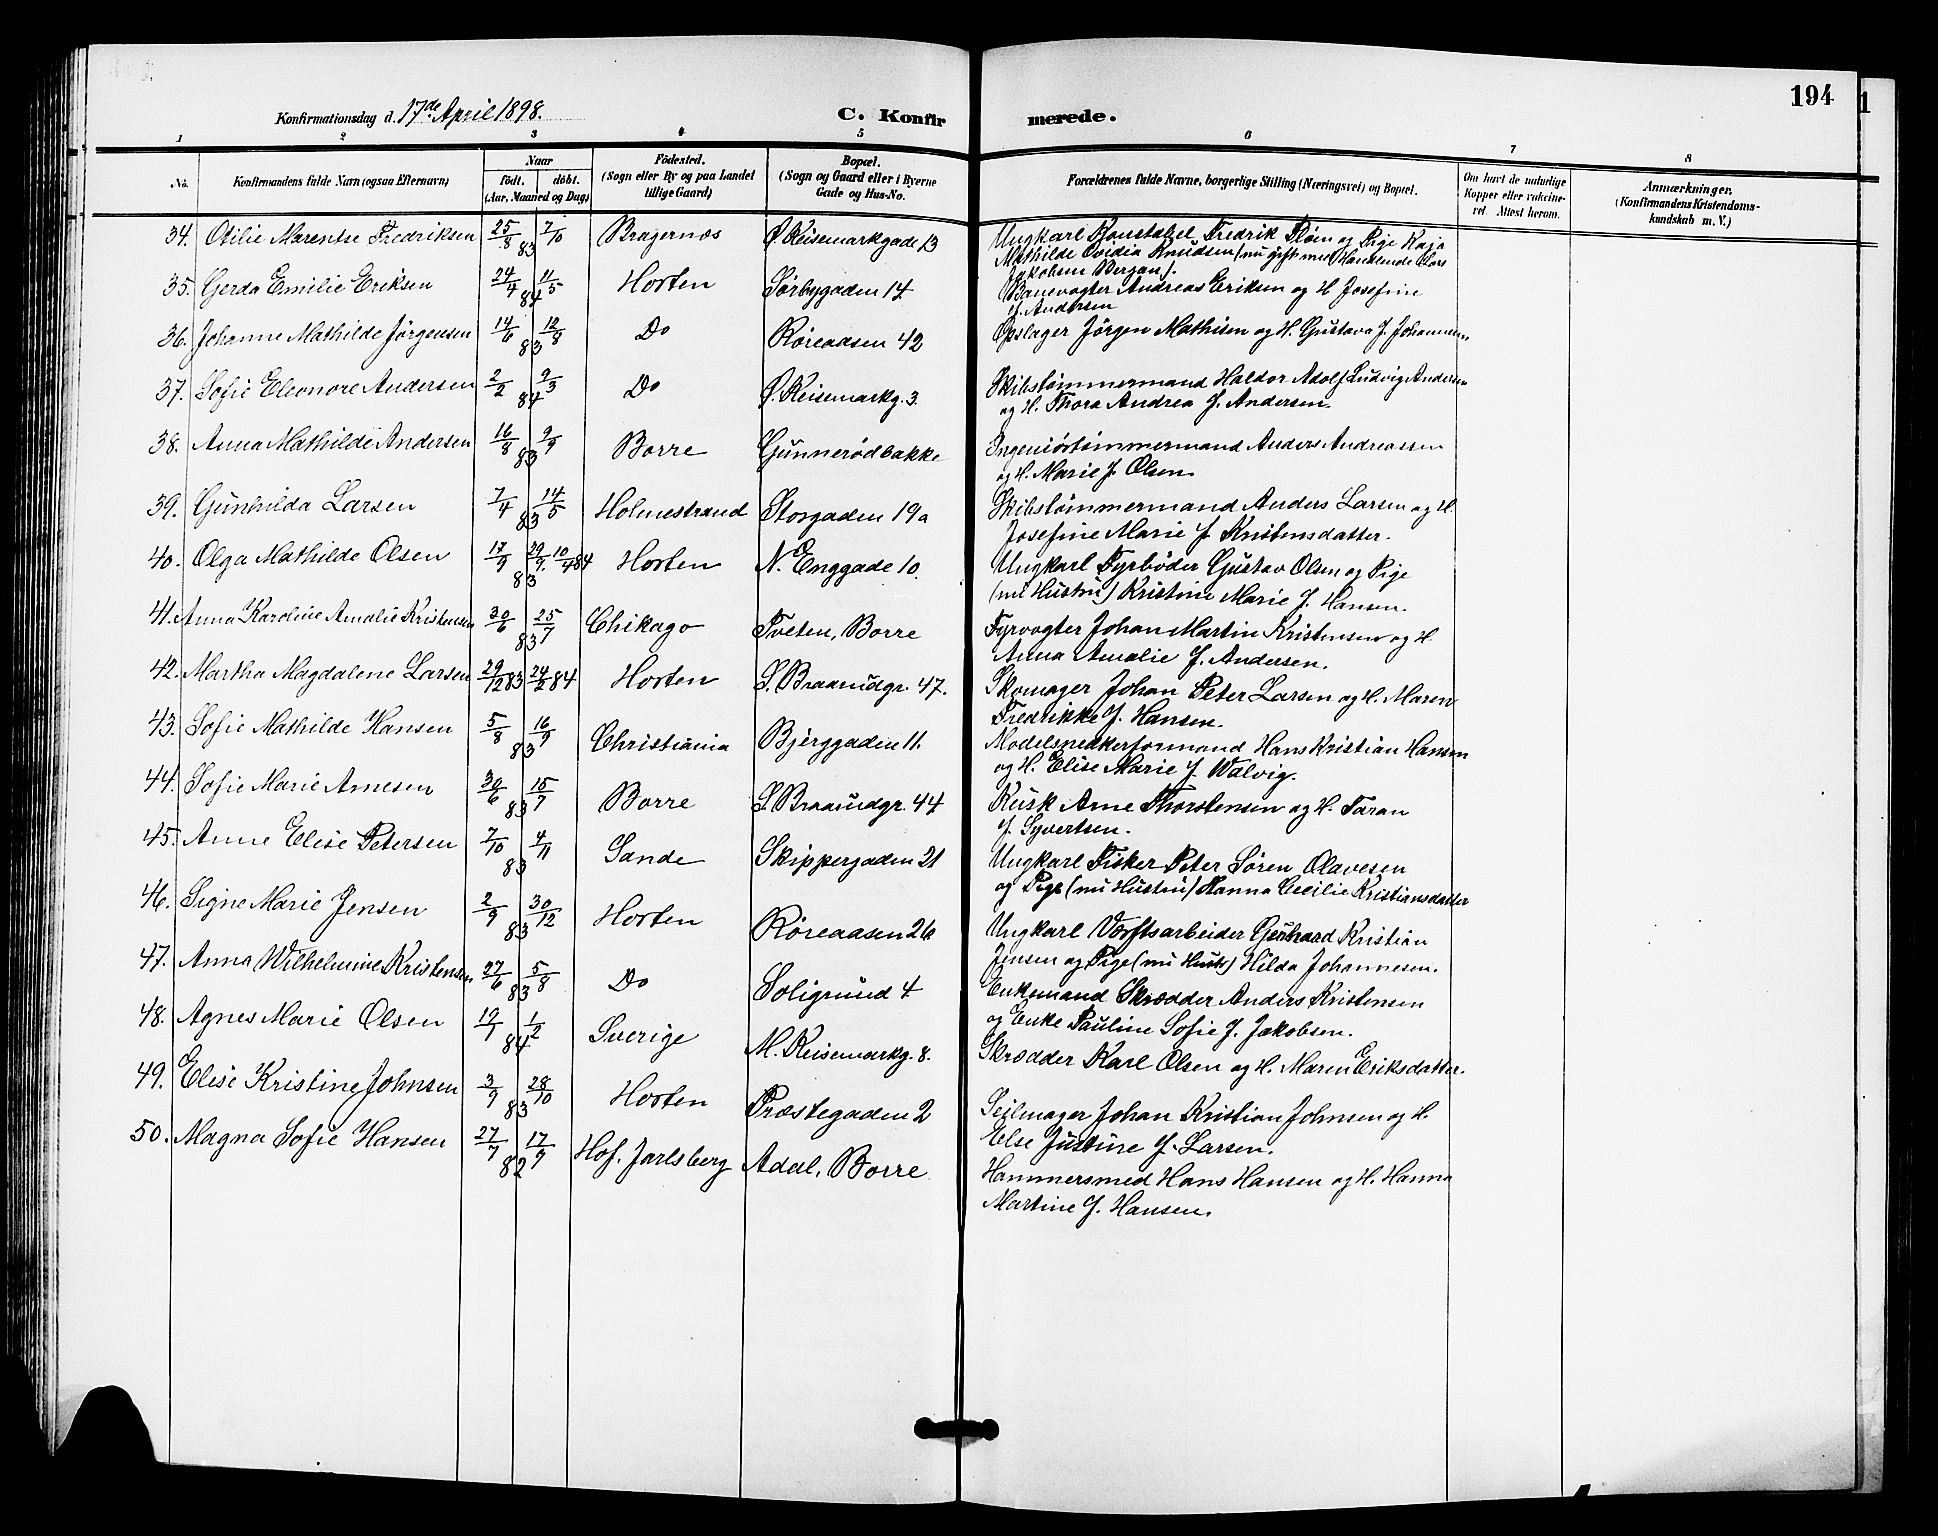 194
Konfirmationsdag d. 17de April 1898.
C. Konfirmerede.
1 2 3 4 5 6 7 8
No. Konfirmandens fulde Navn (ogsaa Efternavn) Naar födt. döbt. (Aar, Maaned og Dag) Födested. (Sogn eller By og paa Landet tillige Gaard) Bopæl. (Sogn og Gaard eller i Byerne Gade og Hus-No. Forældrenes fulde Navne, borgerlige Stilling (Næringsvei) og Bopæl. Om havt de naturlige Kopper eller vakcineret. Attest herom. Anmærkninger. (Konfirmandens Kristendomskundskab m. V.)
34. Otilie Marentse Fredriksen 25/8 83 7/10 Bragernæs Ø. Keisemarkgade 13 Ungkarl Konstabel Fredrik Fløm og Pige Kaja
Mathilde Ovidia Knudsen (nu gift med Handlende Lars
Jakobsen Bergan).
35. Gerda Emilie Eriksen 24/4 84 11/5 Horten Sørbygaden 14 Banevogter Andreas Eriksen og H Josefine
f. Andersen
36. Johanne Mathilde Jörgensen 14/6 83 12/8 Do Røreaasen 42 Opslager Jörgen Mathisen og H. Gustava f. Johannesen
37. Sofie Eleonore Andersen 2/2 84 9/3 Do Ø. Keisemarkg. 3. Skibstømmermand Haldor Adolf Ludvig Andersen
og H. Thora Andrea f. Andersen
38. Anna Mathilde Andersen 16/8 83 9/9 Borre Gunnerødbakke Ingeniörtømmermand Anders Andreassen
og H. Marie f. Olsen
39. Gunhilda Larsen 7/4 83 14/5 Holmestrand Storgaden 19a Skibstømmermand Anders Larsen og H
Josefine Marie f Kristensdatter.
40. Olga Mathilde Olsen 17/9 83 29/9 10/4 84 Horten N. Enggade 10. Ungkarl Fyrbøder Gustav Olsen og Pige
(nu Hustru) Kristine Marie f. Hansen.
41. Anna Karoline Amalie Kristensen 30/6 83 25/7 Chikago Tveten, Borre Fyrvogter Johan Martin Kristensen og H
Anna Amalie f. Andersen.
42. Martha Magdalene Larsen 29/12 83 24/2 84 Horten S. Braarudgr. 47. Skomager Johan Peter Larsen og H. Maren
Fredrikke f. Hansen.
43. Sofie Mathilde Hansen 5/8 83 16/9 Christiania Bjerggaden 11. Modelsnedkerformand Hans Kristian Hansen
og H. Elise Marie f. Walvig.
44. Sofie Marie Arnesen 30/6 83 15/7 Borre S. Braarudgr. 44 Kusk Arne Thorstensen og H. Taran
f. Syvertsen.
45. Anne Elise Petersen 7/10 83 4/11 Sande Skippergaden 21 Ungkarl Fisker Peter Søren Olavesen
og Pige (nu Hustru) Hanna Cecilie Kristiansdatter
46. Signe Marie Jensen 2/9 83 30/12 Horten Røreaasen 26 Ungkarl Værftsarbeider Gerhard Kristian
Jensen og Pige (nu Hustr) Hilda Johannesen.
47. Anna Wilhelmine Kristensen 27/6 83 5/8 Do Soligrund 4 Enkemand Skrædder Anders Kristensen
og Enke Pauline Sofie f. Jakobsen.
48. Agnes Marie Olsen 19/1 84 1/2 Sverige M. Keisemarkg. 8. Skrædder Karl Olsen og H. Maren Eriksdatter.
49. Elise Kristine Johnsen 3/9 83 28/10 Horten Præstegaden 2 Seilmager Johan Kristian Johnsen og H
Else Justine f. Larsen.
50. Magna Sofie Hansen 27/7 82 17/9 Hof. Jarlsberg Adal, Borre Hammersmed Hans Hansen og H. Hanna
Martine f. Hansen.